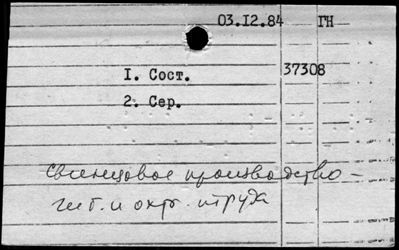 03.I2.84 ГН
I. Сост. 37308
2. Сер.
свинцовое производство -
гиг. и охр. труда